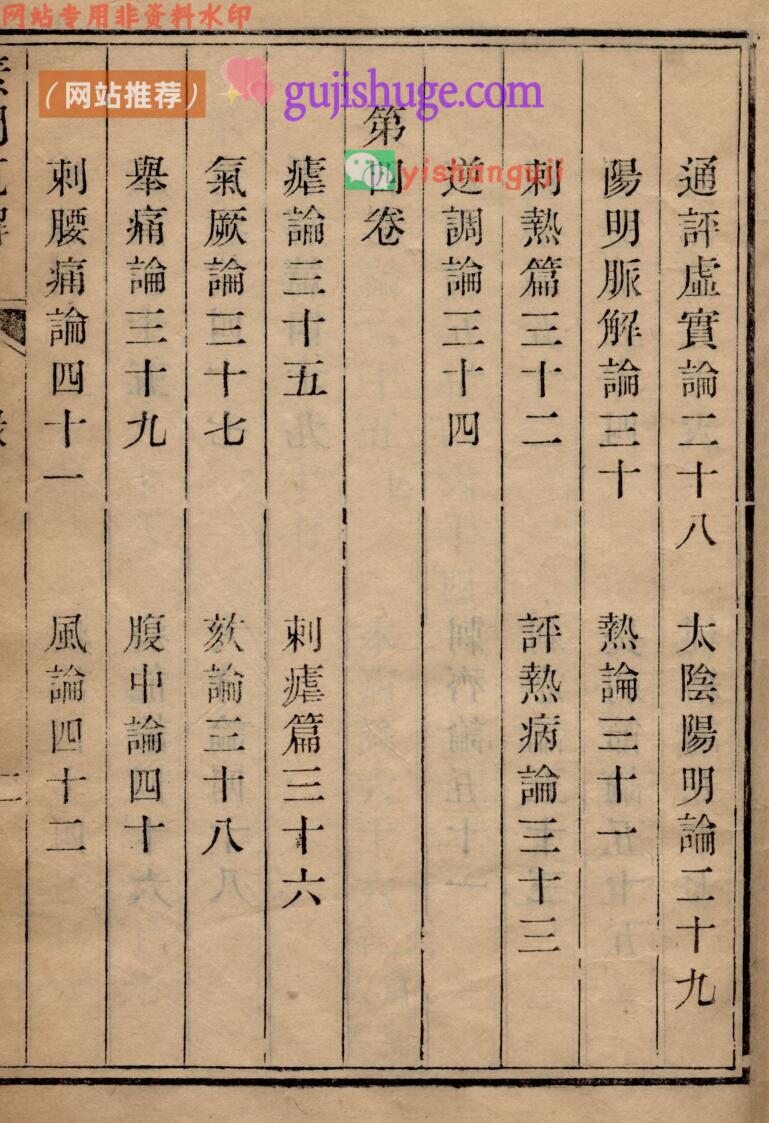 网站专用非资料水印
（网站推荐）
gujishuge.com
yishanguji
通評虛實論二十八　太陰陽明論二十九
陽明脈解論三十　熱論三十一
刺熱篇三十二　評熱病論三十三
逆調論三十四
第四卷
瘧論三十五　刺瘧篇三十六
氣厥論三十七　欬論三十八
舉痛論三十九　腹中論四十
刺腰痛論四十一　風論四十二
二